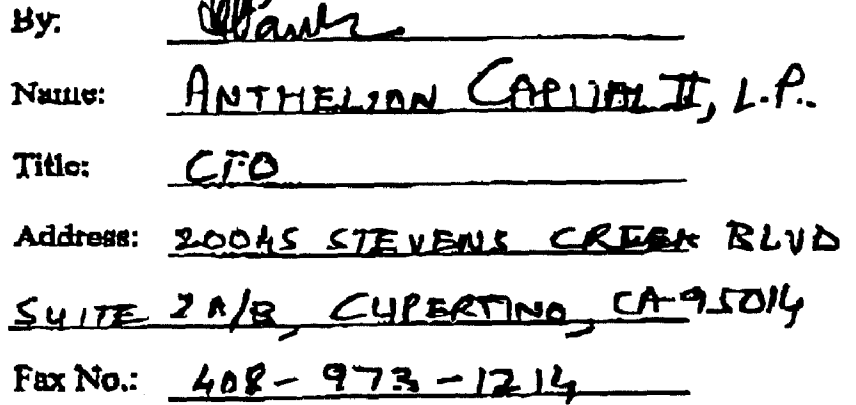 By:
Name: ANTHELION CAPITAL II, L.P.
Title: CFO
Address: 20045 STEVENS CREEK BLVD
SUITE 2A/B, CUPERTINO, CA-95014
Fax No.: 408-973-1214